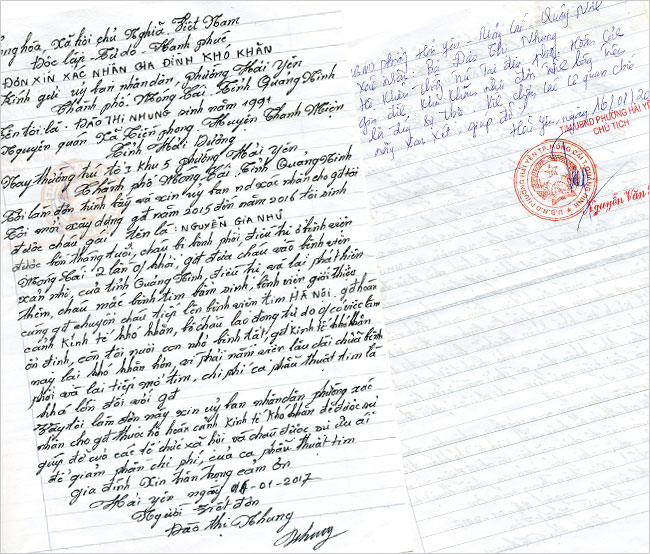 Cộng hòa, Xã hội chủ Nghĩa, Việt Nam
Độc lập - Tự do - Hạnh phúc
ĐƠN XIN XÁC NHẬN GIA ĐÌNH KHÓ KHĂN
Kính gửi ủy ban nhân dân, phường Hải Yên
Thành phố. Móng Cái. Tỉnh Quảng Ninh
Tên tôi là. ĐÀO THỊ NHUNG Sinh năm 1991
Nguyên quán Xã Tiền phong. Huyện Thanh Miện
Tỉnh Hải Dương.
Nay thường trú tổ 3 Khu 5 phường Hải Yên
Thành phố Móng Cái. Tỉnh Quảng Ninh
Tôi làm đơn trình này và xin uỷ ban nd xác nhận cho gđ tôi
Tôi mới xây dựng gđ năm 2015 đến năm 2016 tôi sinh
được cháu gái tên là: NGUYỄN GIA NHƯ
được bốn tháng tuổi, cháu bị bệnh phổi, điều trị ở bệnh viện
Móng Cái 2 lần ko khỏi, gđ đưa cháu vào bệnh viện
sản nhi, của tỉnh Quảng Ninh, điều trị, và lại phát hiện
thêm, cháu mắc bệnh tim bẩm sinh, bệnh viện giới thiệu
cùng gđ chuyển cháu tiếp lên bệnh viện tim HÀ NỘI. gđ hoàn
cảnh kinh tế khó khăn, bố cháu lao động tự do ko có việc làm
ổn định, còn tôi nuôi con nhỏ bệnh tật, gđ kinh tế khó khăn
nay lại khó khăn hơn, vì phải nằm viện lâu dài chữa bệnh
phổi và lại tiếp mổ tim, chi phí ca phẫu thuật tim là
khá lớn đối với gđ
Vậy tôi làm đơn này xin uỷ ban nhân dân phường xác
nhận cho gđ thuộc hộ hoàn cảnh kinh tế khó khăn để được sự
giúp đỡ của các tổ chức xã hội và cháu được sự ưu ái
để giảm phần chi phí, của ca phẫu thuật tim
gia đình xin trân trọng cảm ơn
Hải yên ngày 16-01-2017
Người viết đơn
Đào thị Nhung
Nhung
UBND phường Hải Yên - Móng Cái - Quảng Ninh
Xác nhận: Bà Đào Thị Nhung
Hộ khẩu thường trú tại địa phương. Hoàn cảnh
gia đình khó khăn
là đúng sự thật. cơ quan
này xem xét, giúp đỡ
Hải Yên, ngày 16/01/20
TM.UBND PHƯỜNG HẢI YÊ
CHỦ TỊCH
U.B.N.D PHƯỜNG HẢI YÊN TP.MÓNG CÁI T.QUẢNG NINH
Nguyễn Văn